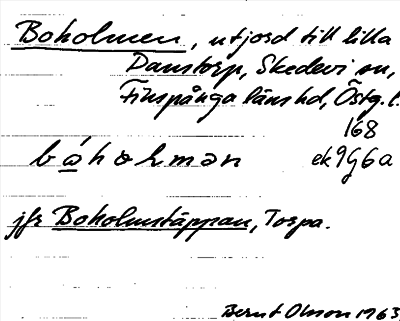 Boholmen, utjord till Lilla
Danstorp, Skedevi sn,
Finspånga länshd, Östg. l.
168
bóholmən ek 9G6a
jfr Boholmstäppan, Torpa.
Bernt Olsson 1963